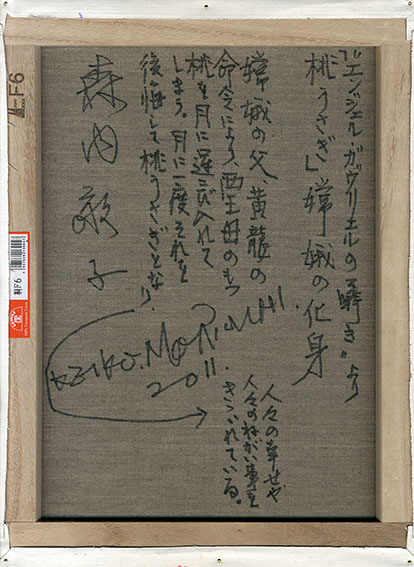 『エンジェル ガヴリエルの囁き』より
「桃うさぎ」嫦娥の化身
嫦娥の父、黄龍の
命令により、西王母のもつ
桃を月に運び入れて
しまう。月に一度それを
後悔して桃うさぎとなり、
人々の幸せや
人々のねがい事を
きゝいれている。
森内敬子
KEIKO.MORIUCHI.
2011.
F6
桐F6